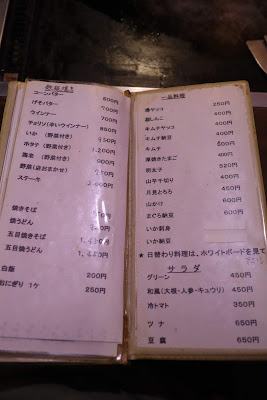 鉄板焼き
コーンバター 600円
げそバター 700円
ウインナー 700円
チョリソ(辛いウインナー) 850円
いか (野菜付き) 950円
ホタテ (野菜付き) 1,200円
海老 (野菜付き) 900円
野菜(店おまかせ)
ステーキ
焼きそば
焼うどん
五目焼きそば
五目うどん
白飯 200円
おにぎり 1ケ 250円
一品料理
冷ヤッコ 250円
おしんこ 400円
キムチヤッコ 400円
キムチ納豆 400円
キムチ 400円
厚焼きたまご 400円
明太子 520円
山芋千切り 400円
月見とろろ 450円
山かけ 600円
まぐろ納豆 600円
いか刺身
いか納豆
★ 日替わり料理は、ホワイトボードを見て
サラダ
グリーン 450円
和風(大根・人参・キュウリ) 450円
冷トマト 350円
ツナ 650円
豆腐 650円